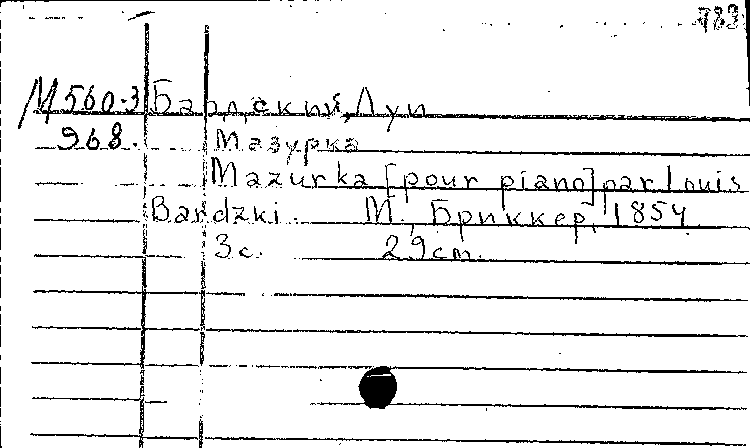 783
М560.3 Бардский, Луи
968. Мазурка
Mazurka [pour piano] par Louis
Bardzki. М., Бриккер, 1854
3с. 29cm.